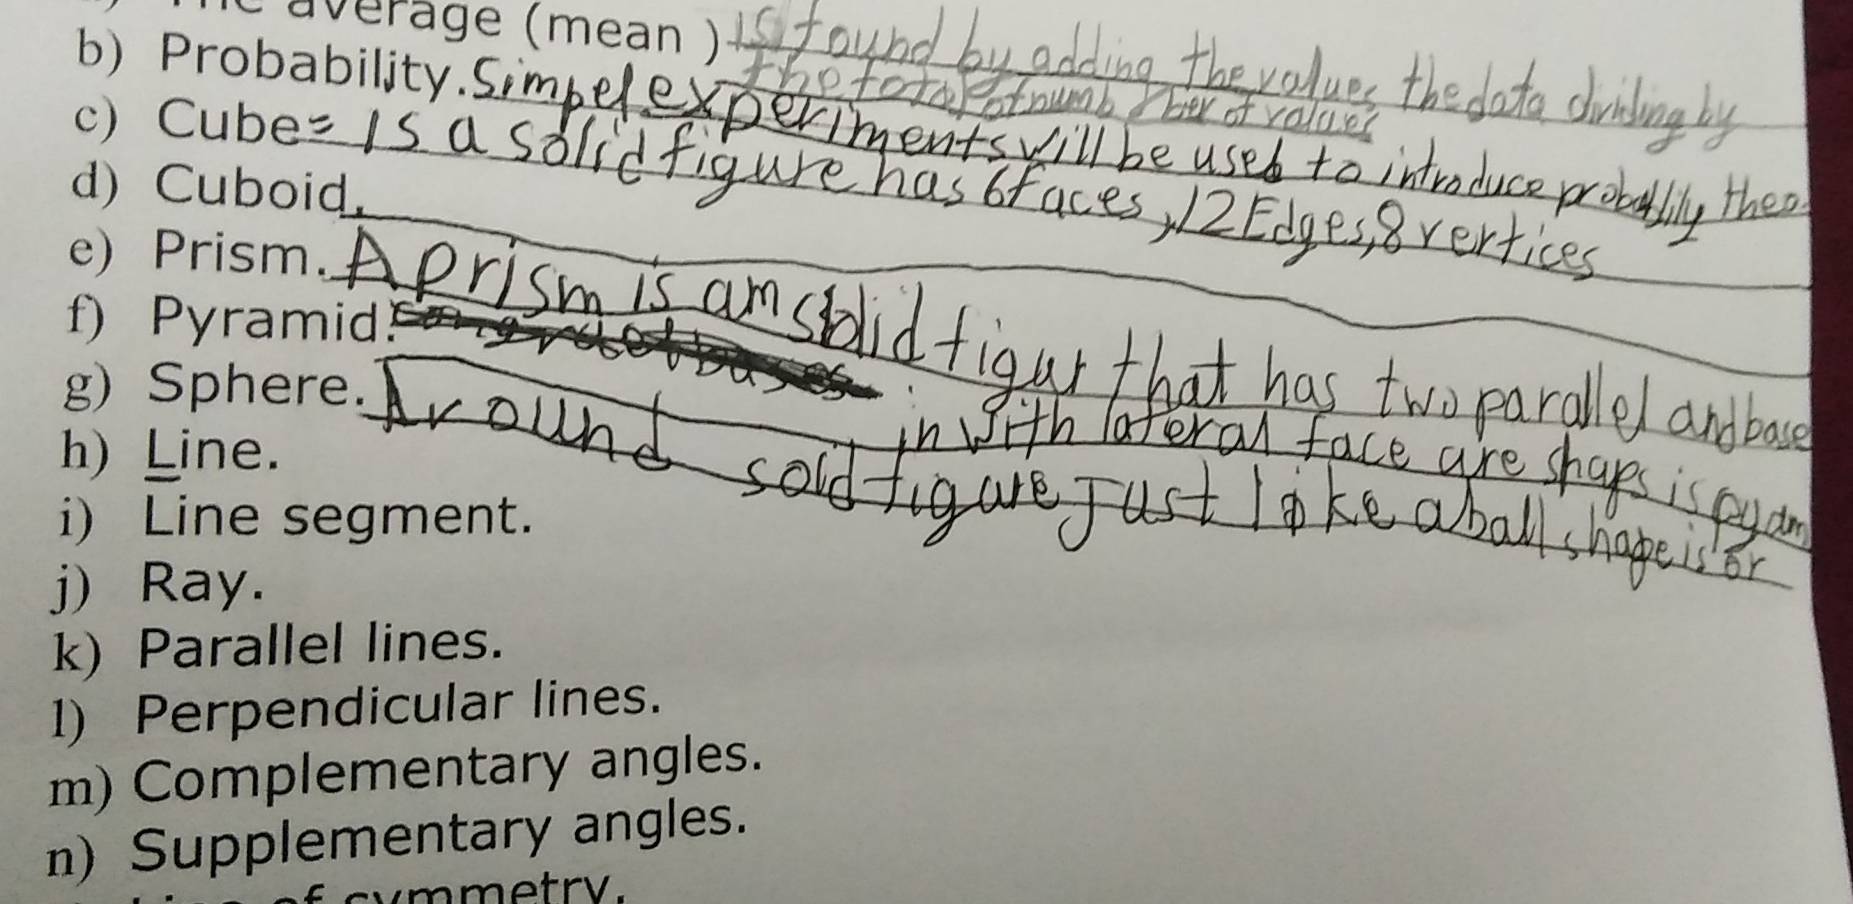 average (mean ) is found by adding the values the data dividing by
the total of numb ber of values
b) Probability. Simpel experiments will be used to introduce probability theo
c) Cube= is a solid figure has 6 faces, 12 Edges, 8 vertices
d) Cuboid.
e) Prism. A prism is am solid figur that has two parallel and base
f) Pyramid.
in with lateral face are shaps is pyam
g) Sphere. Around solid figure Just like a ball shape is or
h) Line.
i) Line segment.
j) Ray.
k) Parallel lines.
l) Perpendicular lines.
m) Complementary angles.
n) Supplementary angles.
of symmetry.